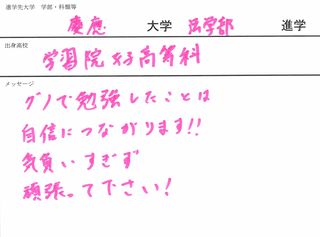 進学先大学 学部・科類等
慶應 大学 法学部 進学
出身高校
学習院女子高等科
メッセージ
グノで勉強したことは
自信につながります!!
気負いすぎず
頑張って下さい!